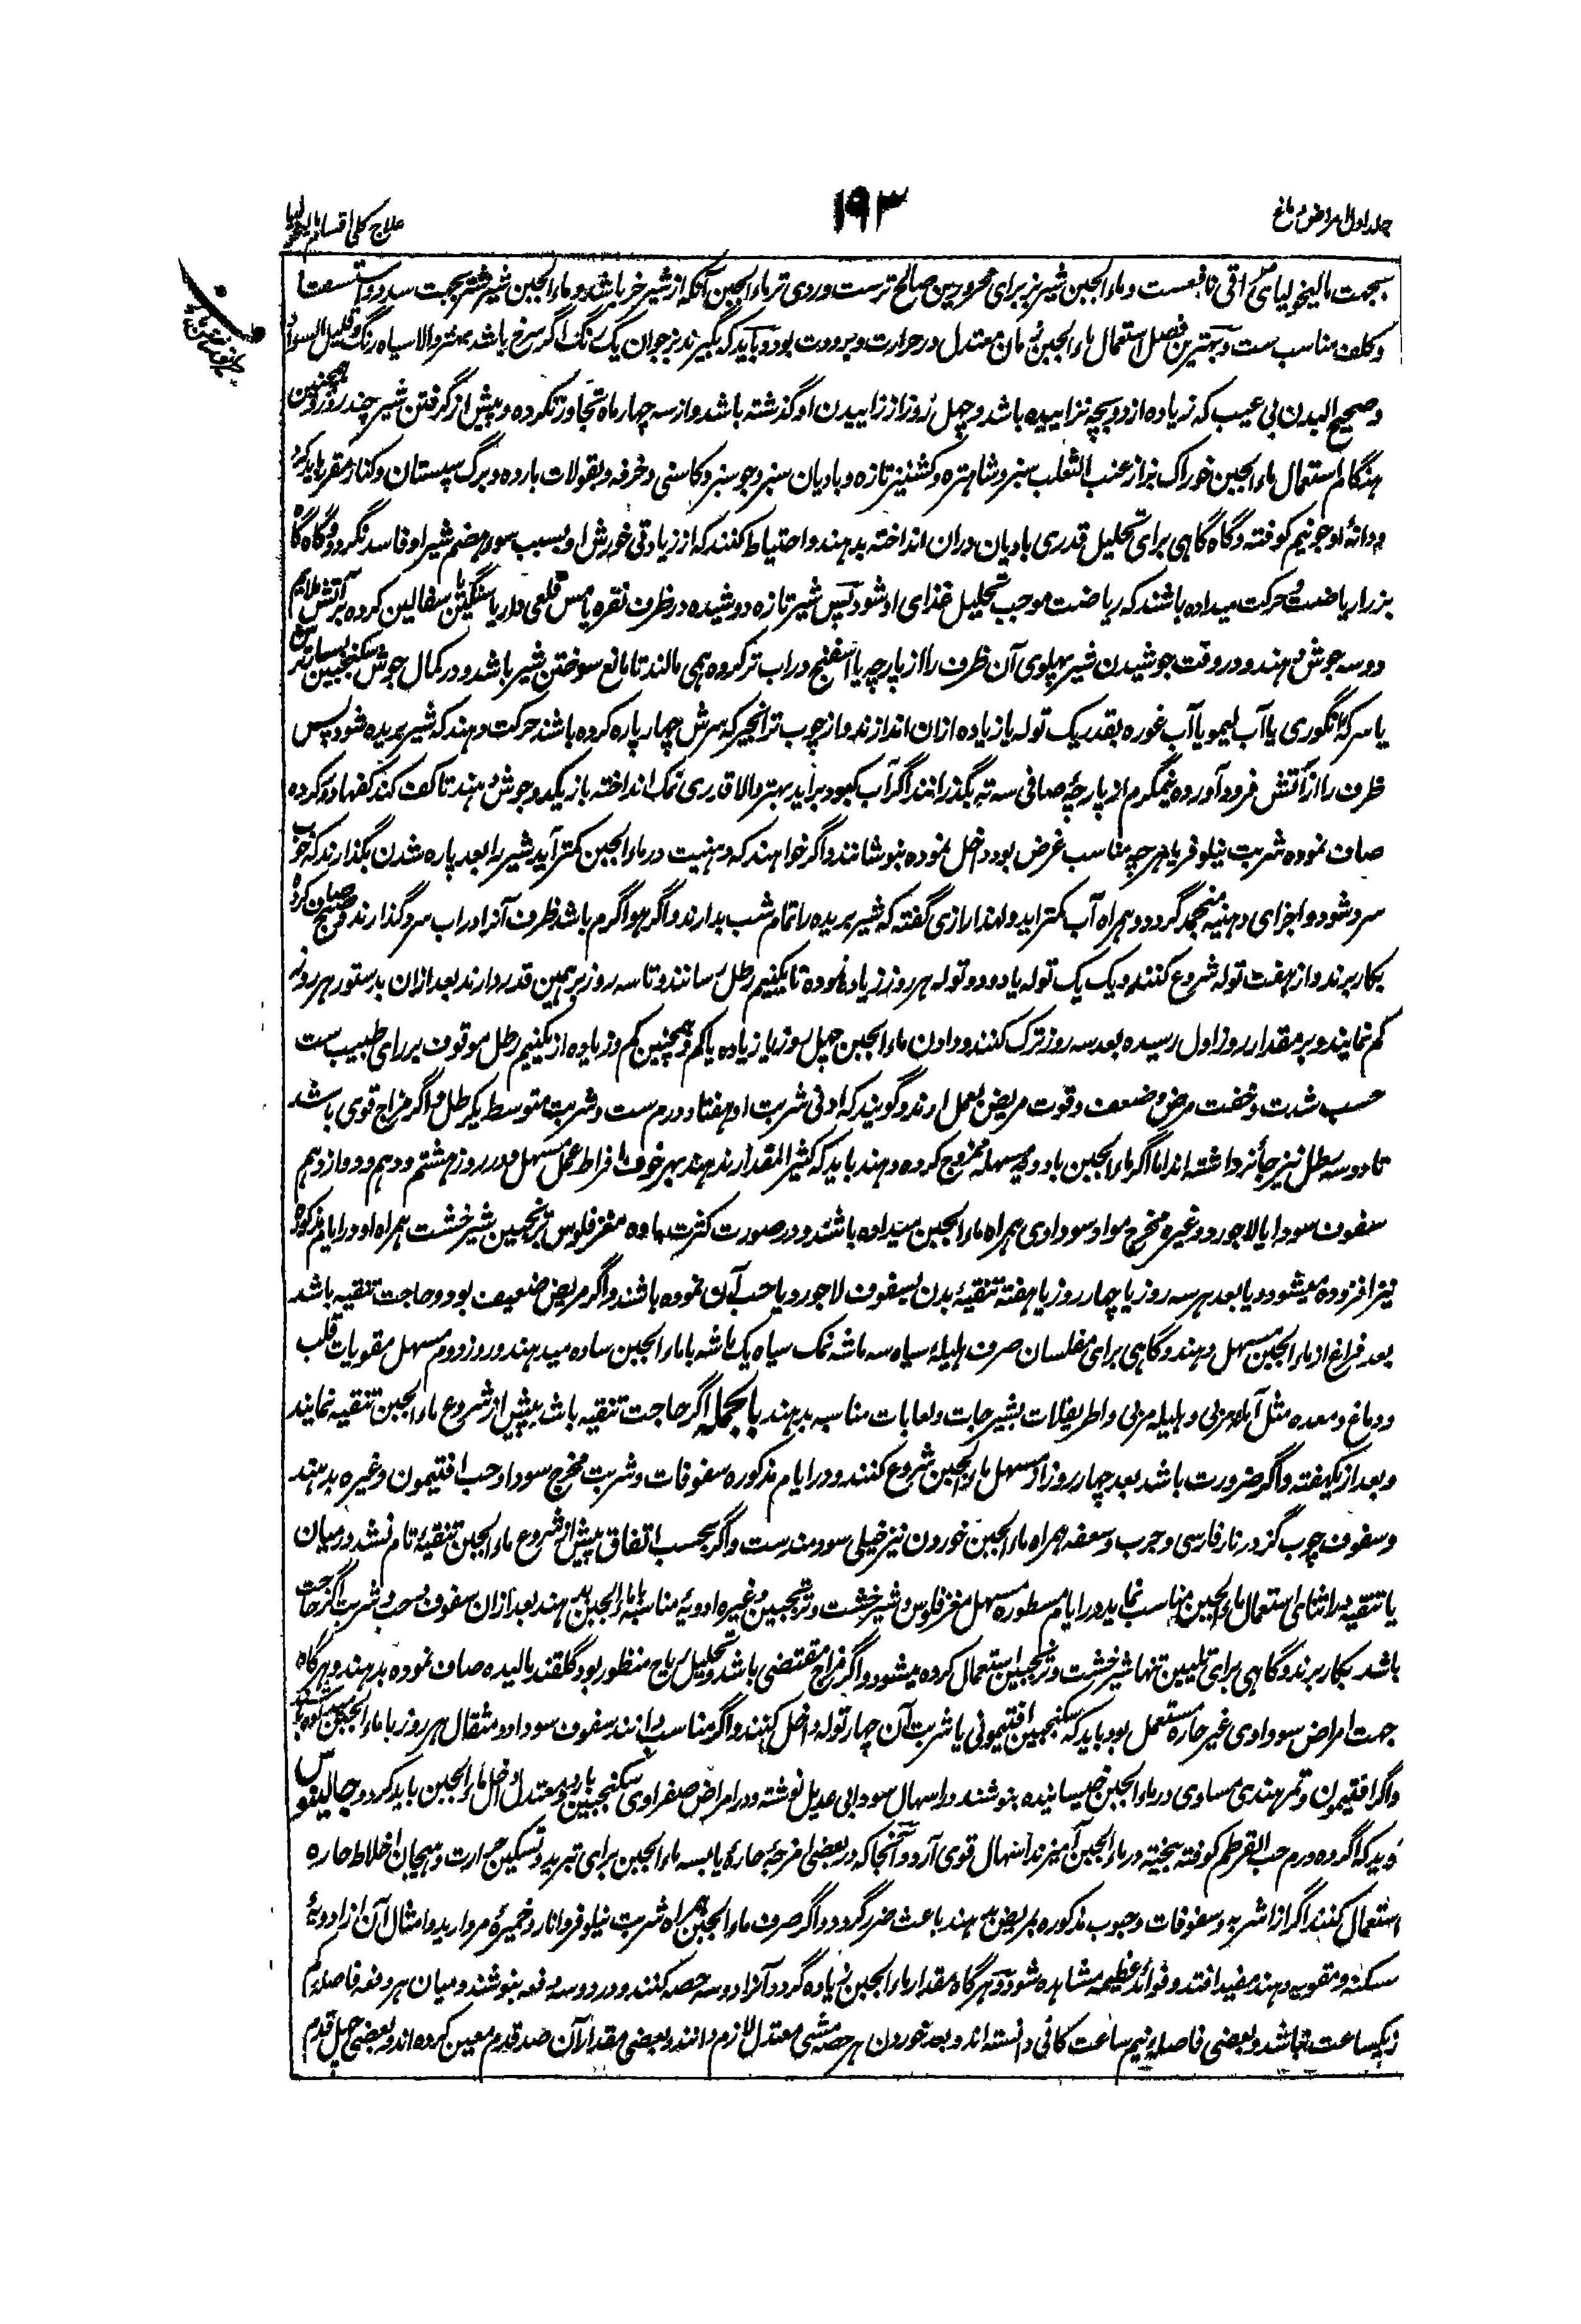 جلد اول امراض دماغ
۱۹۳
علاج کلی اقسام مالیخولیا
بجهت مالیخولیای مراقی نافعست و ماء الجبن شیر بز برای محرورین صالح ترست و ردی تر ماء الجبن آنکه از شیر خر باشد و ماء الجبن شیر شتر بجهت سدد و استسقا
و کلف مناسب ست و بهترین فصل استعمال ماء الجبن زمان معتدل در حرارت و برودت بود و باید که بگیرند بز جوان یک رنگ اگر سرخ باشد بهتر والا سیاه رنگ و قلیل السواد
و صحیح البدن بی عیب که زیاده از دو بچه نزاییده باشد و چهل روز از زاییدن او گذشته باشد و از سه چهار ماه تجاوز نکرده و پیش از گرفتن شیر چند روز و همچنین
هنگام استعمال ماء الجبن خوراک بز از عنب الثعلب سبز و شاهتره و کشنیز تازه و بادیان سبز و جو سبز و کاسنی و خرفه و بقولات بارده و برگ سپستان و کنار مقرر باید کرد
و دانهٔ او جو نیم کوفته و گاه گاهی برای تحلیل قدری بادیان دران انداخته بدهند و احتیاط کنند که از زیادتی خورش او بسبب سوء هضم شیر او فاسد نگردد و گاه گاه
بز را ریاضت و حرکت میداده باشند که ریاضت موجب تحلیل غذای او شود پس شیر تازه دوشیده در ظرف نقره یا مس قلعی دار یا سنگین یا سفالین کرده بر آتش ملایم
دو سه جوش دهند و در وقت جوشیدن شیر پهلوی آن ظرف را از پارچه یا اسفنج در اب تر کرده همی مالند تا مانع سوختن شیر باشد و در کمال جوش سکنجبین بسیار ترش
یا سرکهٔ انگوری یا آب لیمو یا آب غوره بقدر یک توله یا زیاده ازان اندازند و از چوب تر انجیر که سرش چهار پاره کرده باشند حرکت دهند که شیر بریده شود پس
ظرف را از آتش فرود آورده نیمگرم از پارچهٔ صافی سه ته بگذرانند اگر آب کبود براید بهتر والا قدری نمک انداخته باز یکدو جوش دهند تا کف کند کفها دور کرده
صاف نموده شربت نیلوفر یا هرچه مناسب غرض بود داخل نموده بنوشانند و اگر خواهند که دهنیت در ماء الجبن کمتر آید شیر را بعد پاره شدن بگذارند که خوب
سرد شود و اجزای دهنیه منجمد گردد و همراه آب کمتر اید ولهذا رازی گفته که شیر بریده را تمام شب بدارند و اگر هوا گرم باشد ظرف آنرا در اب سرد گذارند و صبح صاف کرده
بکار برند و از هفت توله شروع کنند و یک یک توله یا دو دو توله هر روز زیاده نموده تا یکنیم رطل رسانند و تا سه روز بر همین قدر دارند بعد ازان بدستور هر روز
کم نمایند و بر مقدار روز اول رسیده بعد سه روز ترک کنند و دادن ماء الجبن چهل روز یا زیاده یا کم و همچنین کم و زیاده از یکنیم رطل موقوف بر رای طبیب ست
حسب شدت و خفت مرض و ضعف و قوت مریض بعمل ارند و گویند که ادنی شربت او هفتاد درم ست و شربت متوسط یکرطل و اگر مزاج قوی باشد
تا دو سه رطل نیز جائز داشته اند اما اگر ماء الجبن با ادویهٔ مسهله ممزوج کرده دهند باید که کثیر المقدار ندهند بهر خوف افراط عمل مسهل و در روز هشتم و دهم و دوازدهم
سفوف سودا یا لاجورد و غیره مخرج مواد سوداوی همراه ماء الجبن میداده باشند و در صورت کثرت ماده مغز فلوس ترنجبین شیرخشت همراه او در ایام مذکوره
نیز افزوده میشود و یا بعد هر سه روز یا چهار روز یا هفته تنقیهٔ بدن بسفوف لاجورد یا حب آن نموده باشند و اگر مریض ضعیف بود و حاجت تنقیه باشد
بعد فراغ از ماء الجبن مسهل دهند و گاهی برای مفلسان صرف هلیلهٔ سیاه سه ماشه نمک سیاه یک ماشه با ماء الجبن ساده میدهند و روز دوم مسهل مقویات قلب
و دماغ و معده مثل آملهٔ مربی و هلیله مربی و اطریفلات بشیرجات و لعابات مناسبه بدهند بالجمله اگر حاجت تنقیه باشد پیش از شروع ماء الجبن تنقیه نمایند
و بعد از یکهفته و اگر ضرورت باشد بعد چهار روز از مسهل ماء الجبن شروع کنند و در ایام مذکوره سفوفات و شربت مخرج سودا و حب افتیمون و غیره بدهند
و سفوف چوب گز در نار فارسی و جرب و سعفه همراه ماء الجبن خوردن نیز خیلی سودمندست و اگر بحسب اتفاق پیش از شروع ماء الجبن تنقیهٔ تام نشد درمیان
یا تنقیه در اثنای استعمال ماء الجبن مناسب نماید در ایام مسطوره مسهل مغز فلوس و شیرخشت و ترنجبین و غیره ادویهٔ مناسبه با ماء الجبن دهند بعد ازان سفوف و حب و شربت اگر حاجت
باشد بکار برند و گاهی برای تلیین تنها شیرخشت و ترنجبین استعمال کرده میشود و اگر مزاج مقتضی باشد و تحلیل ریاح منظور بود گلقند مالیده صاف نموده بدهند و هرگاه
جهت امراض سوداوی غیر حاره مستعمل بود باید که سکنجبین افتیمونی یا شربت آن چهار توله داخل کنند و اگر مناسب دانند سفوف سودا دو مثقال هر روز با ماء الجبن
و اگر افتیمون و تمر هندی مساوی در ماء الجبن خیسانیده بنوشند در اسهال سودا بی عدیل نوشته و در امراض صفراوی سکنجبین بارد و معتدل داخل ماء الجبن باید کرد و جالینوس
گوید که اگر ده درم حب القرطم کوفته بیخته در ماء الجبن آمیزند اسهال قوی آرد و آنجا که در بعضی امزجهٔ حارهٔ یابسه ماء الجبن برای تبرید و تسکین حرارت و هیجان اخلاط حاره
استعمال کنند اگر از اشربه و سفوفات و حبوب مذکوره بمریض دهند باعث ضرر گردد و اگر صرف ماء الجبن همراه شربت نیلوفر و انار و خمیرهٔ مروارید و امثال آن از ادویهٔ
مسکنه و مقویه دهند مفید افتد و فوائد عظیمه مشاهده شود و هرگاه مقدار ماء الجبن زیاده گردد آنرا دو سه حصه کنند و در دو سه دفعه بنوشند و میان هر دفعه فاصله کم
از یکساعت نباشد و بعضی فاصلهٔ نیم ساعت کافی دانسته اند و بعد خوردن هر حصه مشی معتدل لازم دانند و بعضی مقدار آن صد قدم معین کرده اند و بعضی چهل قدم